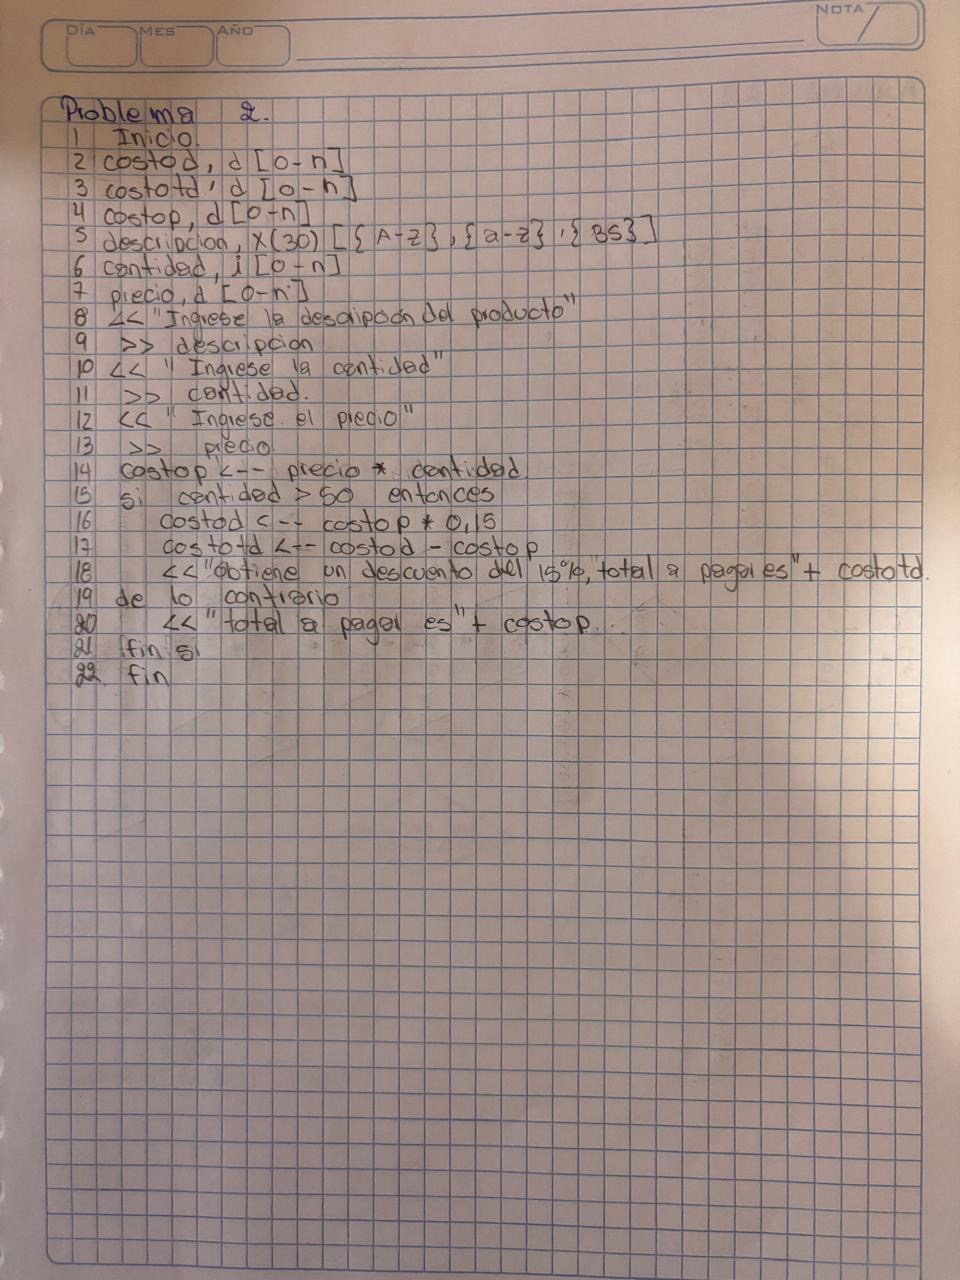 DÍA MES AÑO NOTA
Problema 2.
1 Inicio.
2 costod, d [0-n]
3 costotd, d [0-n]
4 costop, d [0-n]
5 descripcion, X(30) [{A-Z}, {a-z}, {BS}]
6 cantidad, i [0-n]
7 precio, d [0-n]
8 << "Ingrese la descripcion del producto"
9 >> descripcion
10 << "Ingrese la cantidad"
11 >> cantidad.
12 << "Ingrese el precio"
13 >> precio.
14 costop <-- precio * cantidad
15 si cantidad > 50 entonces
16 costod <-- costop * 0,15
17 costotd <-- costod - costop
18 << "obtiene un descuento del 15%, total a pagar es" + costotd.
19 de lo contrario
20 << "total a pagar es" + costop.
21 fin si
22 fin